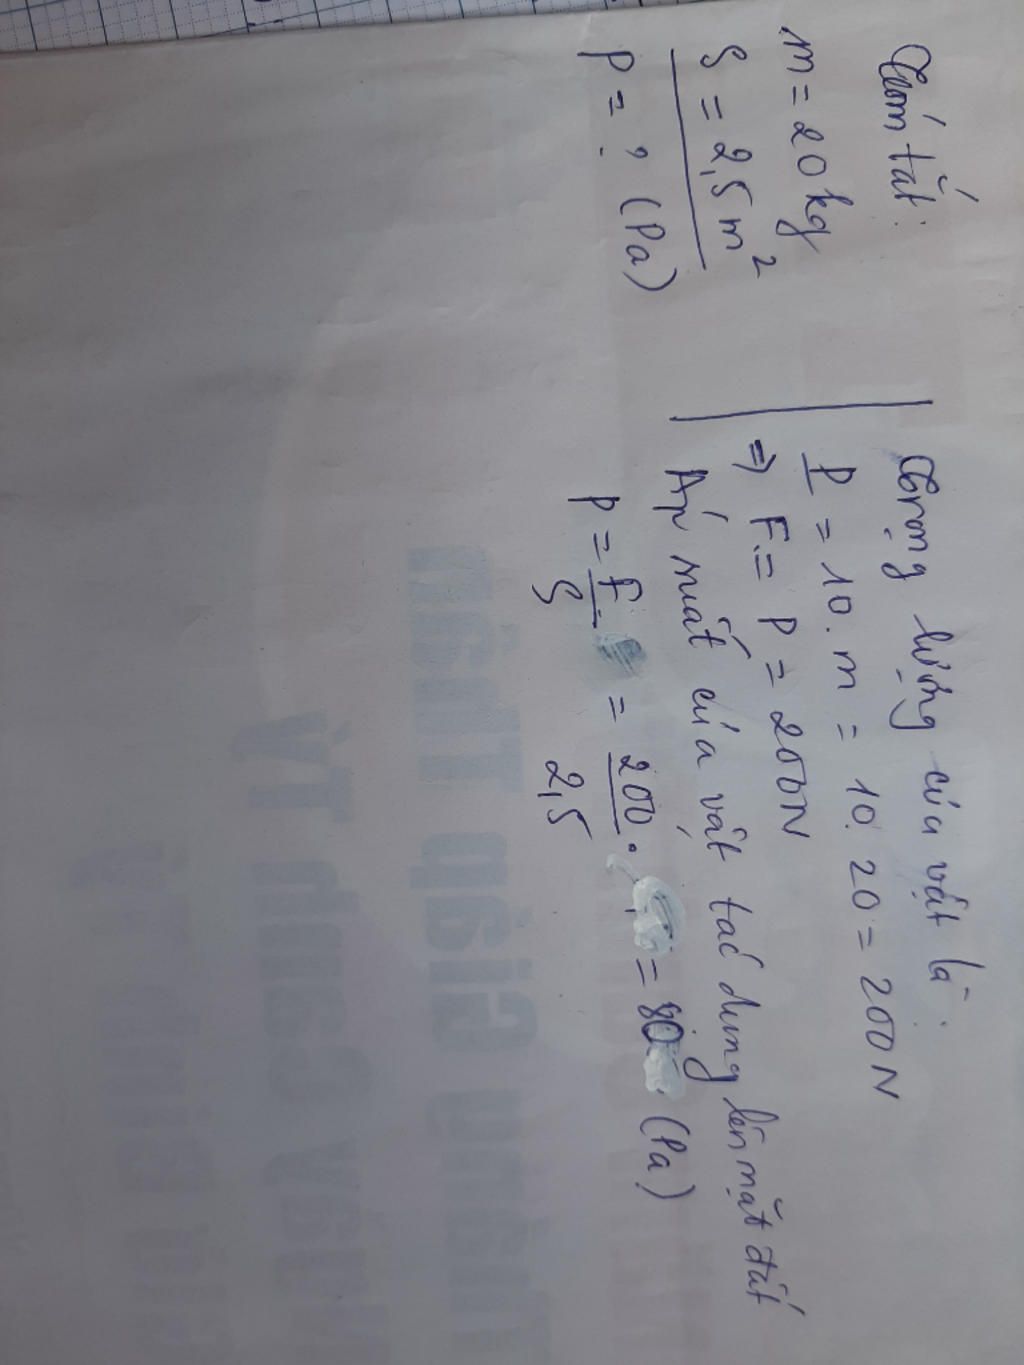 Tóm tắt:
m = 20kg
S = 2,5m²
P = ? (Pa)
Trọng lượng của vật là:
P = 10.m = 10.20 = 200N
⇒ F = P = 200N
Áp suất của vật tác dụng lên mặt đất
P = F/S = 200/2,5 = 80 (Pa)